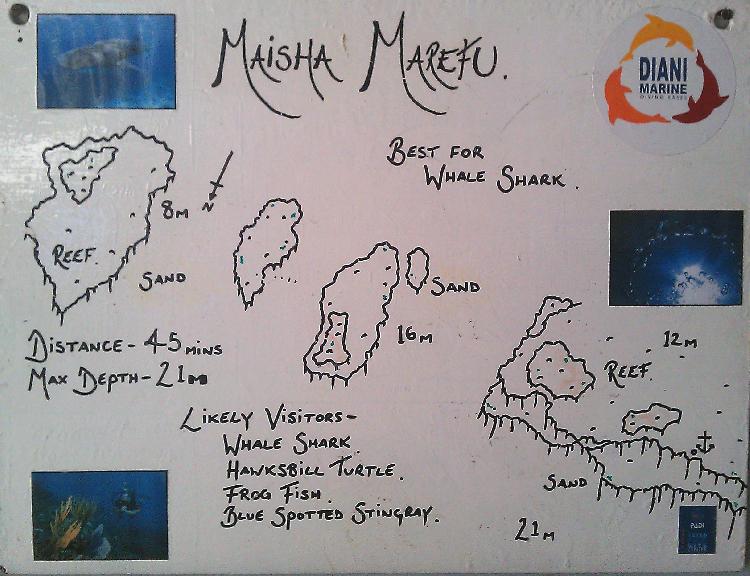 MAISHA MAREFU.
DIANI
MARINE
BEST FOR
WHALE SHARK.
N
8M
REEF
SAND
SAND
16M
12M
REEF
DISTANCE - 45 MINS
MAX DEPTH - 21M
LIKELY VISITORS -
WHALE SHARK
HAWKSBILL TURTLE.
FROG FISH.
BLUE SPOTTED STINGRAY.
SAND
21M
PADI